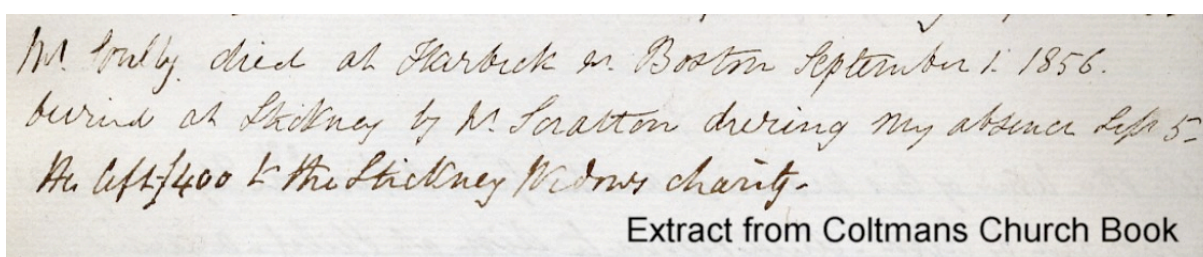 Mr. Soulby died at Skirbeck nr. Boston September 1. 1856.
buried at Stickney by Mr. Scratton during my absence Sept 5
He left £400 to the Stickney Widows charity.
Extract from Coltmans Church Book